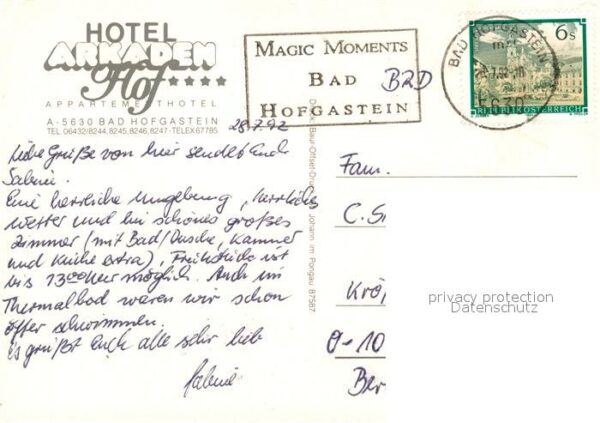 HOTEL
ARKADEN
Hof ★★★★
APPARTEMENTHOTEL
A-5630 BAD HOFGASTEIN
TEL 06432/8244, 8245, 8246, 8247 · TELEX 67785
MAGIC MOMENTS
BAD
HOFGASTEIN
BRD
BAD HOFGASTEIN
6s
REPUBLIK ÖSTERREICH
28.7.92
Liebe Grüße von hier sendet Euch
Sabine.
Eine herrliche Umgebung, herrliches
Wetter und ein schönes großes
Zimmer (mit Bad/Dusche, Kammer
und Küche extra), Frühstück ist
bis 13 00 Uhr möglich. Auch im
Thermalbad waren wir schon
öfter schwimmen.
Es grüßt Euch alle sehr lieb
Sabine
Offset-Druck St. Johann im Pongau 87587
Fam.
C.S
Krö
O-10
Ber
privacy protection
Datenschutz